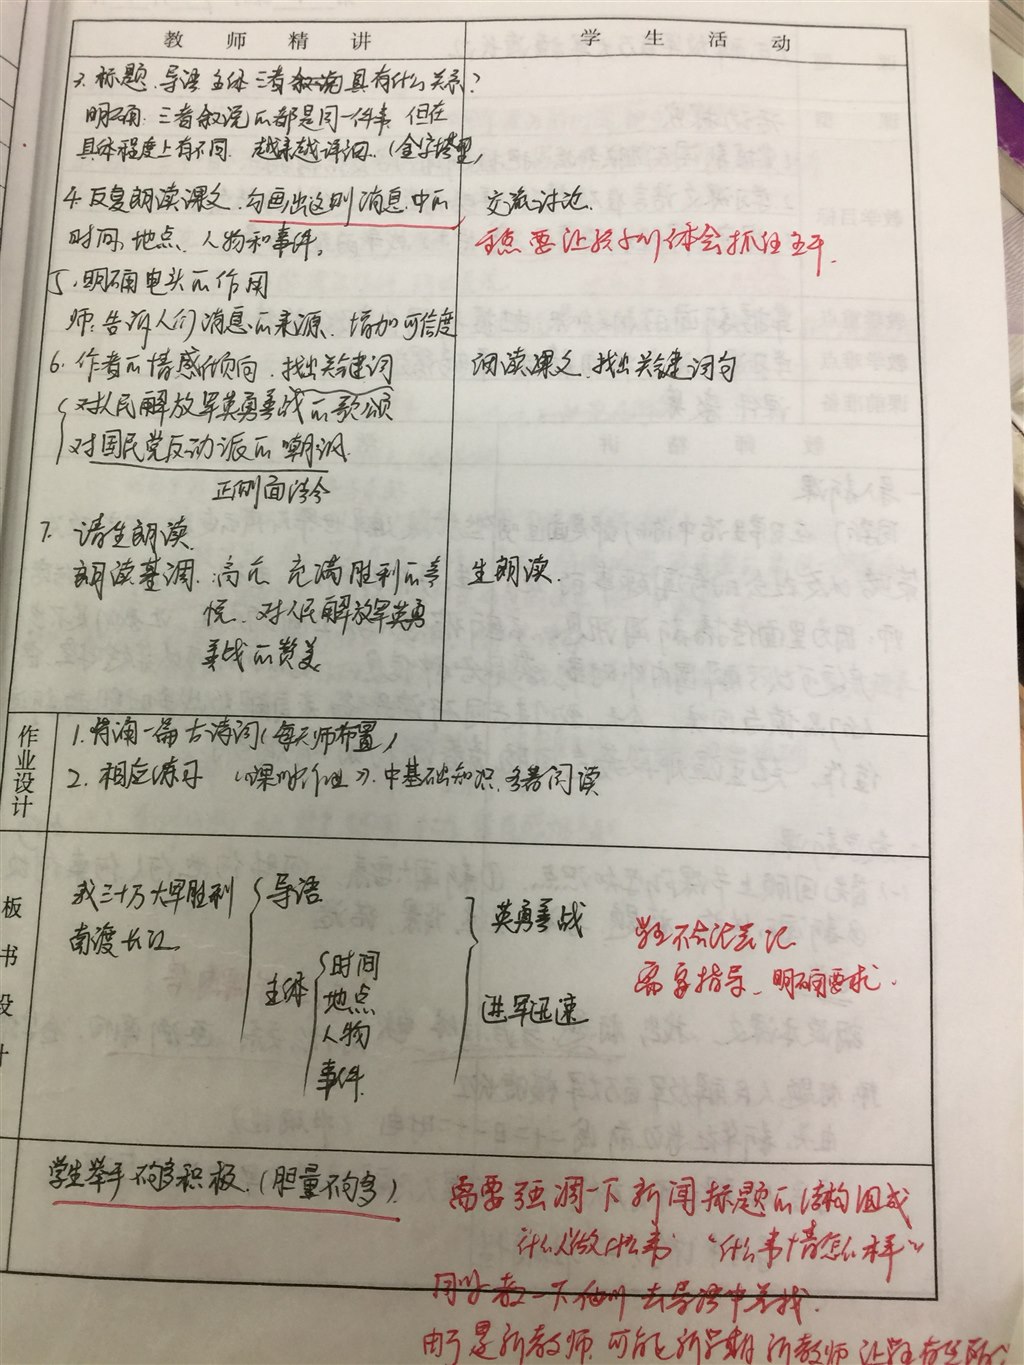 教师精讲
学生活动
3. 标题、导语 主体 三者叙说具有什么关系?
明确: 三者叙说的都是同一件事 但在
具体程度上有不同. 越来越详细. (金字塔型)
4. 反复朗读课文, 勾画出这则消息中的
时间, 地点、人物和事件。
交流讨论.
重点要让孩子们体会抓住主干.
5. 明确电头的作用
师: 告诉人们消息的来源、增加可信度
6. 作者的情感倾向, 找出关键词
阅读课文, 找出关键词句
对人民解放军英勇善战的歌颂
对国民党反动派的嘲讽.
正侧面结合
7. 请生朗读.
朗读基调: 高亢 充满胜利的喜
生朗读.
悦. 对人民解放军英勇
善战的赞美
作业设计
1. 背诵一篇古诗词(每天师布置)
2. 相应练习 《课时作业》中基础知识
阅读
板书设计
我三十万大军胜利
南渡长江
导语
主体
时间
地点
人物
事件.
英勇善战
进军迅速
学生不会记笔记
需要指导、明确要求.
学生举手不够多积极.(胆量不够)
需要强调一下新闻标题的结构组成
什么人做什么事 “什么事情怎么样”
同时教一下他们去导语中寻找.
由于是新教师, 可能新学期新教师 让学生有些